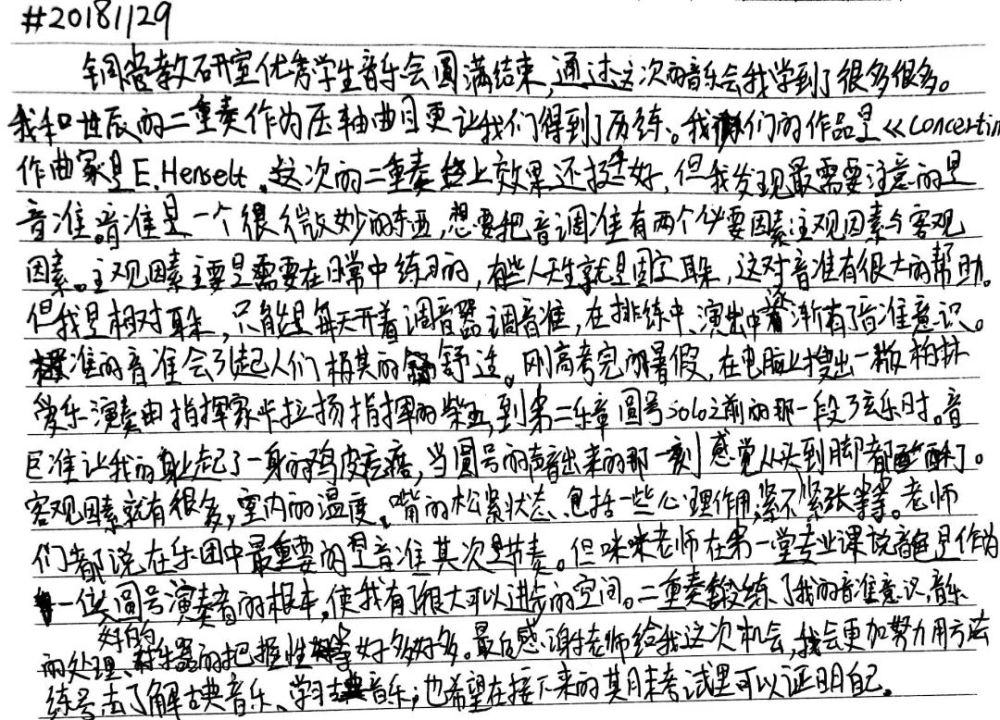 #20181129
铜管教研室优秀学生音乐会圆满结束,通过这次的音乐会我学到了很多很多。
我和世辰的二重奏作为压轴曲目更让我们得到了历练。我们的作品是《Concertin
作曲家是E.Henselt。这次的二重奏台上效果还挺好,但我发现最需要注意的是
音准。音准是一个很微妙的东西,想要把音调准有两个必要因素主观因素与客观
因素。主观因素主要是需要在日常中练习的,有些人天生就是固定耳朵,这对音准有很大的帮助。
但我是相对耳朵,只能是每天开着调音器调音准,在排练中、演出中逐渐有了音准意识。
准的音准会引起人们极其的舒适。刚高考完的暑假,在电脑上搜出一版柏林
爱乐演奏由指挥家卡拉扬指挥的柴五,到第二乐章圆号solo之前的那一段弦乐时。音
巨准让我的身上起了一身的鸡皮疙瘩,当圆号的声音出来的那一刻感觉从头到脚都酥了。
客观因素就有很多,室内的温度、嘴的松紧状态、包括一些心理作用,紧不紧张等等。老师
们都说在乐团中最重要的是音准其次是节奏。但咪咪老师在第一堂专业课说音色是作为
一位圆号演奏者的根本,使我有了很大可以进步的空间。二重奏锻练了我的音准意识,音乐
的处理、好的对乐器的把握性等好多好多。最后感谢老师给我这次机会,我会更加努力用方法
练号去了解古典音乐、学习古典音乐;也希望在接下来的期末考试里可以证明自己。